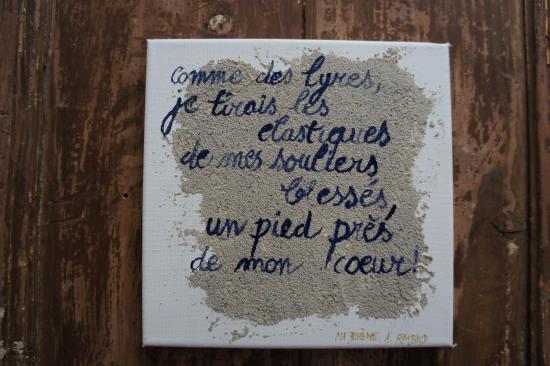 comme des lyres,
je tirais les
elastiques
de mes souliers
blessés,
un pied près
de mon coeur!
MA BOHÈME, A. RIMBAUD